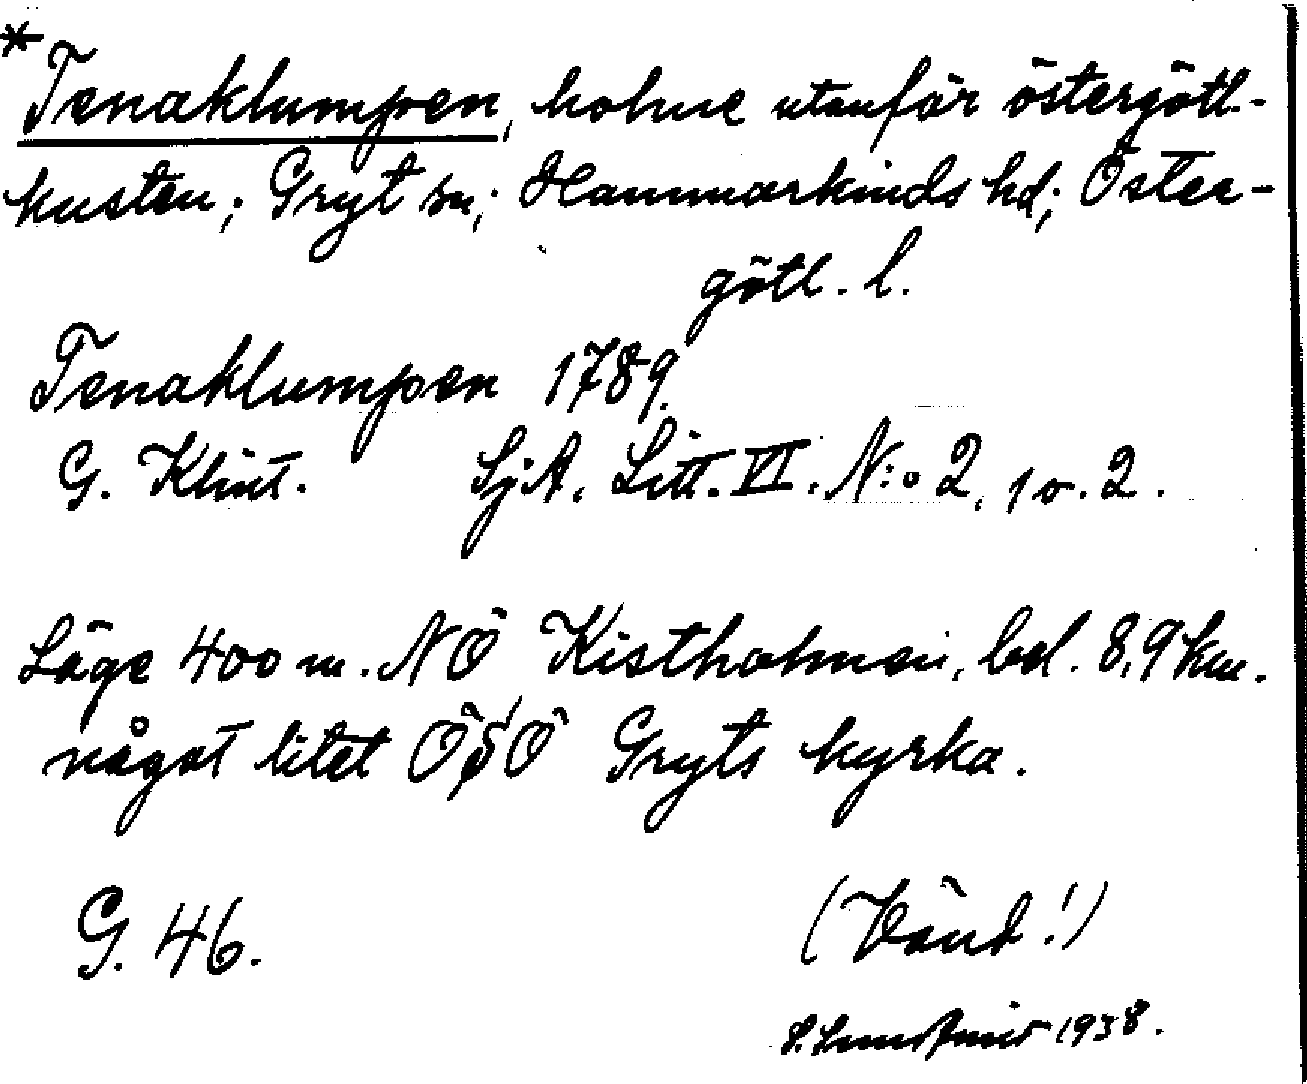 *Tenaklumpen, holme utanför östergötl-
kusten; Gryt sn; Hammarkinds hd; Öster-
götl. l.
Tenaklumpen 1789.
G. Klint. SjA. Litt. VI. N:o 2, 1 o. 2.
Läge 400 m. NÖ Kistholmen, bel. 8,9 km.
något litet ÖSÖ Gryts kyrka.
G. 46. (Vänd!)
1938.